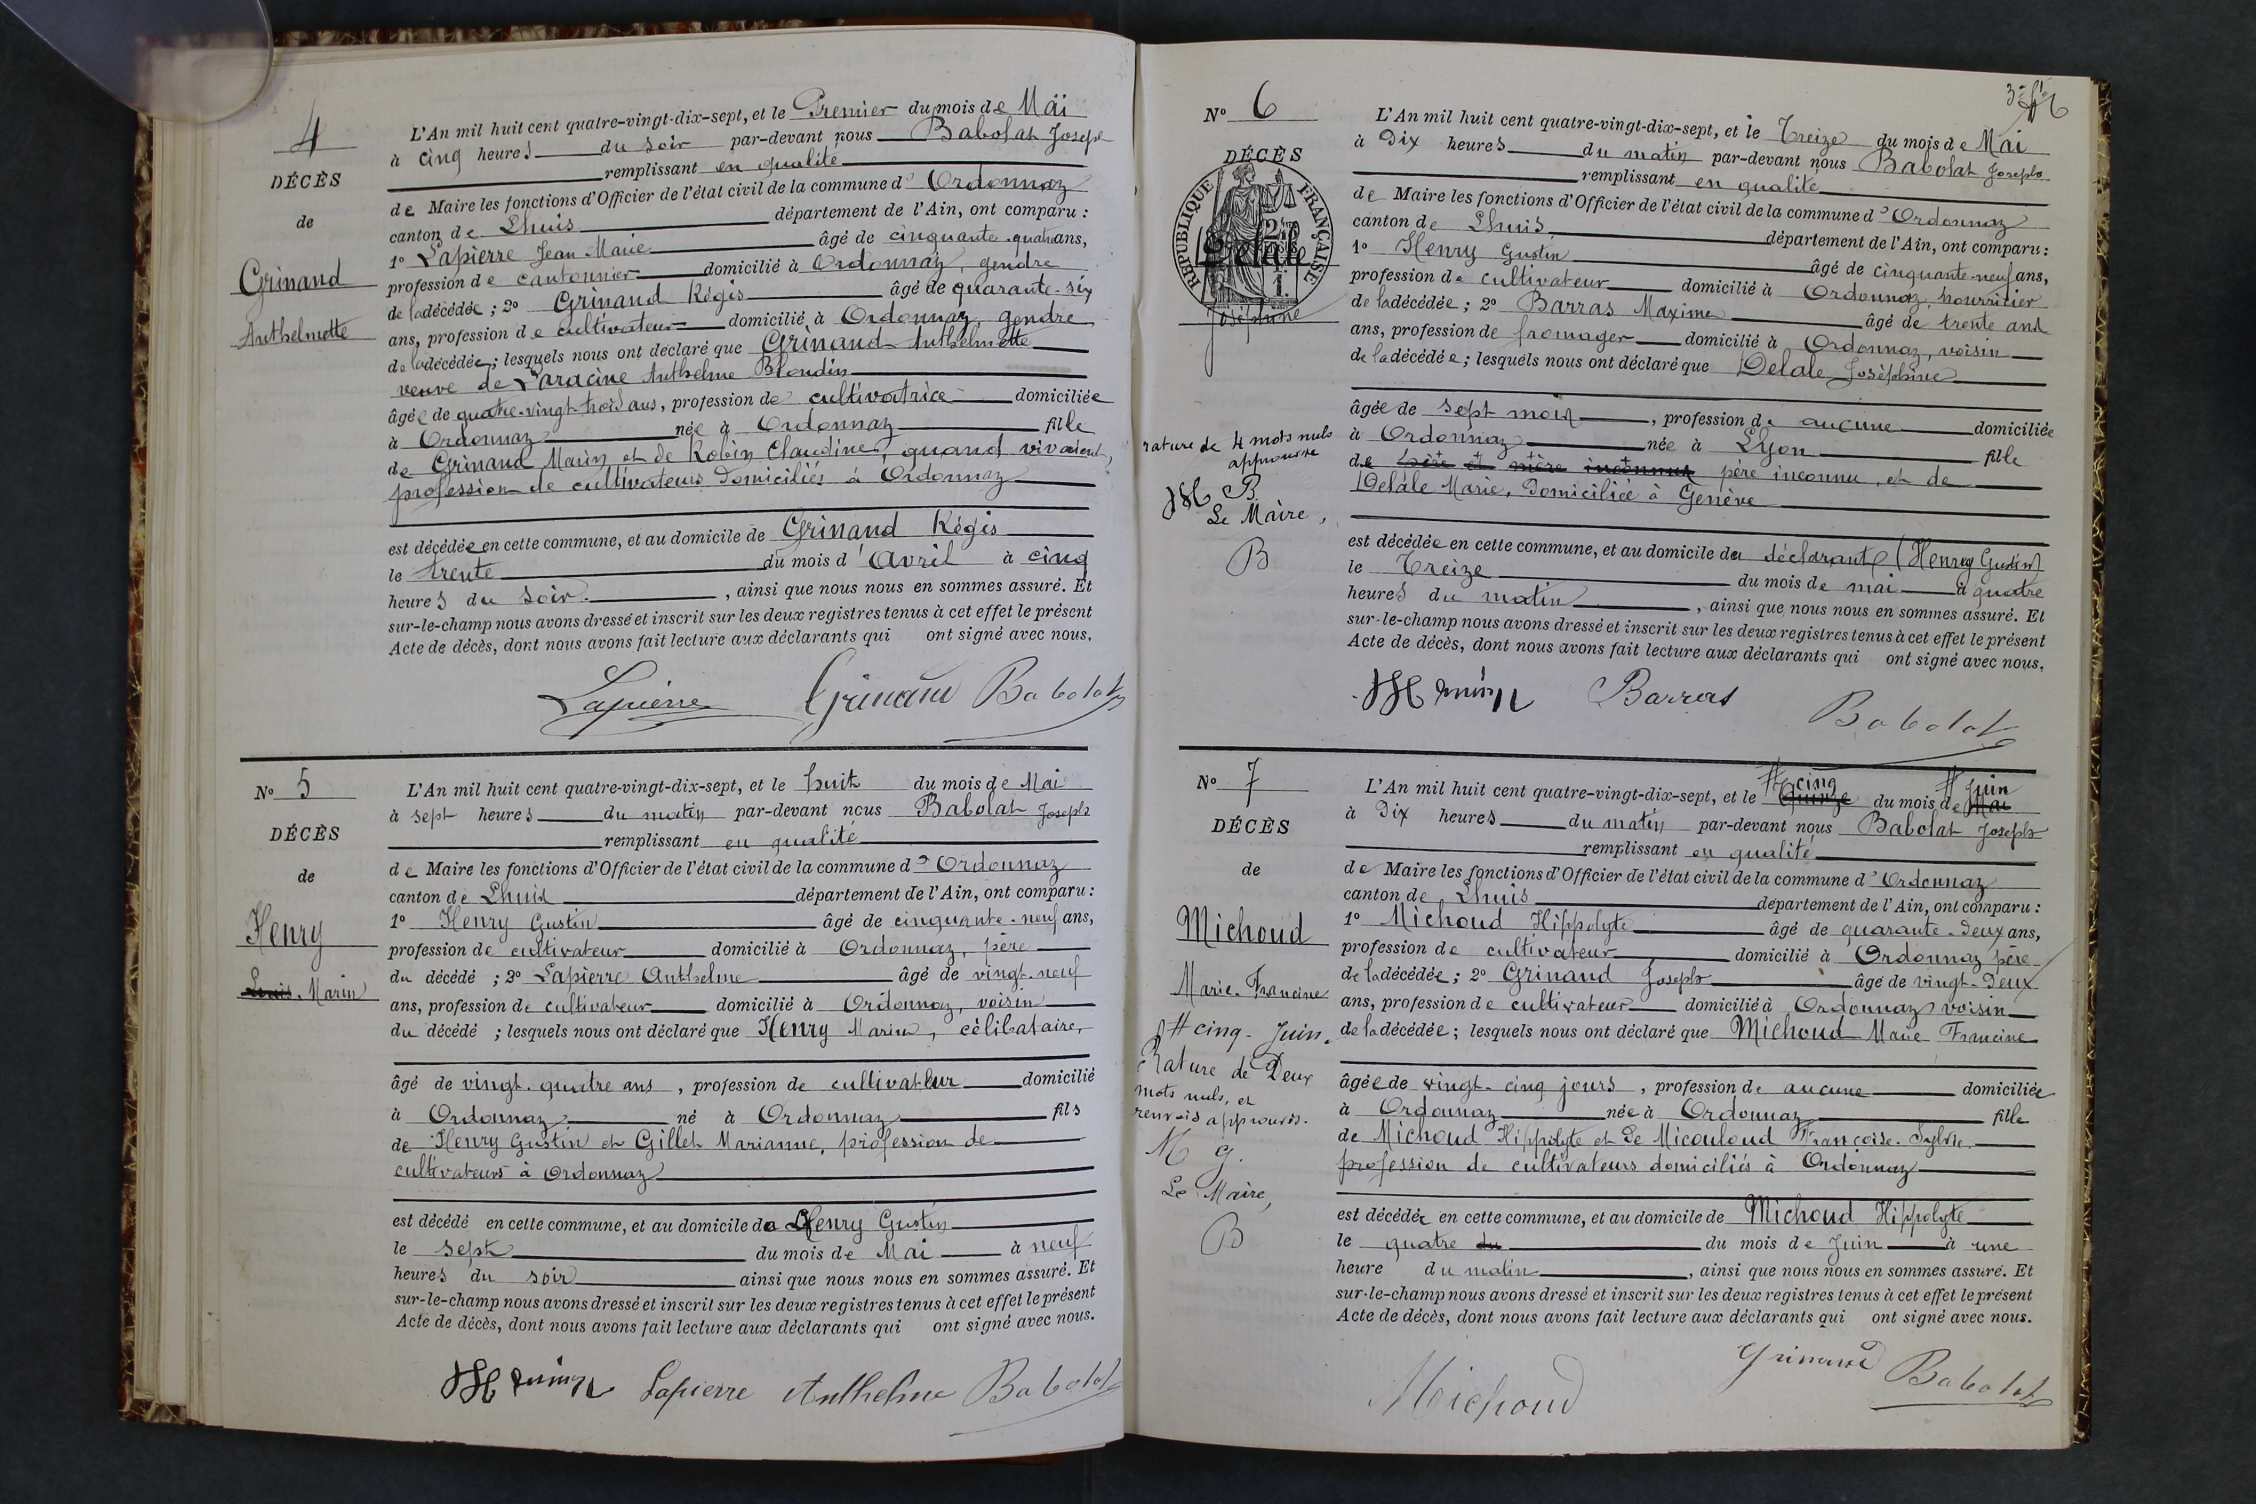 4
DÉCÈS
de
Grinand
Anthelmette
L'An mil huit cent quatre-vingt-dix-sept, et le Premier du mois de Mai
à cinq heures du soir par-devant nous Babolat Joseph
remplissant en qualité
de Maire les fonctions d'Officier de l'état civil de la commune d'Ordonnaz
canton de Lhuis département de l'Ain, ont comparu :
1º Lapierre Jean Marie âgé de cinquante-quatre ans,
profession de cantonnier domicilié à Ordonnaz, gendre
de la décédée ; 2º Grinand Régis âgé de quarante-six
ans, profession de cultivateur domicilié à Ordonnaz, gendre
de la décédée ; lesquels nous ont déclaré que Grinand Anthelmette
veuve de Laracine Anthelme Blondin
âgée de quatre-vingt-trois ans, profession de cultivatrice domiciliée
à Ordonnaz née à Ordonnaz fille
de Grinand Marin et de Robin Claudine, quand vivaient,
profession de cultivateurs domiciliés à Ordonnaz
est décédée en cette commune, et au domicile de Grinand Régis
le trente du mois d'Avril à cinq
heures du soir, ainsi que nous nous en sommes assuré. Et
sur-le-champ nous avons dressé et inscrit sur les deux registres tenus à cet effet le présent
Acte de décès, dont nous avons fait lecture aux déclarants qui ont signé avec nous.
Lapierre Grinand Babolat
Nº 5
DÉCÈS
de
Henry
Louis. Marin
L'An mil huit cent quatre-vingt-dix-sept, et le huit du mois de Mai
à sept heures du matin par-devant nous Babolat Joseph
remplissant en qualité
de Maire les fonctions d'Officier de l'état civil de la commune d'Ordonnaz
canton de Lhuis département de l'Ain, ont comparu :
1º Henry Gustin âgé de cinquante-neuf ans,
profession de cultivateur domicilié à Ordonnaz, père
du décédé ; 2º Lapierre Anthelme âgé de vingt-neuf
ans, profession de cultivateur domicilié à Ordonnaz, voisin
du décédé ; lesquels nous ont déclaré que Henry Marin, célibataire,
âgé de vingt-quatre ans, profession de cultivateur domicilié
à Ordonnaz né à Ordonnaz fils
de Henry Gustin et Gillet Marianne, profession de
cultivateurs à Ordonnaz
est décédé en cette commune, et au domicile de Henry Gustin
le sept du mois de Mai à neuf
heures du soir ainsi que nous nous en sommes assuré. Et
sur-le-champ nous avons dressé et inscrit sur les deux registres tenus à cet effet le présent
Acte de décès, dont nous avons fait lecture aux déclarants qui ont signé avec nous.
Lapierre Anthelme Babolat
Nº 6
DÉCÈS
RÉPUBLIQUE FRANÇAISE
Delale
Joséphine
L'An mil huit cent quatre-vingt-dix-sept, et le Treize du mois de Mai
à Dix heures du matin par-devant nous Babolat Joseph
remplissant en qualité
de Maire les fonctions d'Officier de l'état civil de la commune d'Ordonnaz
canton de Lhuis département de l'Ain, ont comparu :
1º Henry Gustin âgé de cinquante-neuf ans,
profession de cultivateur domicilié à Ordonnaz, nourricier
de la décédée ; 2º Barras Maxime âgé de trente ans
ans, profession de fromager domicilié à Ordonnaz, voisin
de la décédée ; lesquels nous ont déclaré que Delale Joséphine
âgée de sept mois, profession de aucune domiciliée
à Ordonnaz née à Lyon fille
de père et mère inconnus père inconnu, et de
Delale Marie, Domiciliée à Genève
est décédée en cette commune, et au domicile du déclarant (Henry Gustin)
le Treize du mois de mai à quatre
heures du matin, ainsi que nous nous en sommes assuré. Et
sur-le-champ nous avons dressé et inscrit sur les deux registres tenus à cet effet le présent
Acte de décès, dont nous avons fait lecture aux déclarants qui ont signé avec nous.
rature de 4 mots nuls
approuvée
B
Le Maire,
B
Barras Babolat
Nº 7
DÉCÈS
de
Michoud
Marie-Francine
# cinq. Juin.
Rature de Deux
mots nuls, et
renvois approuvés.
M G.
Le Maire,
B
L'An mil huit cent quatre-vingt-dix-sept, et le Quinze # cinq du mois de Mai # Juin
à Dix heures du matin par-devant nous Babolat Joseph
remplissant en qualité
de Maire les fonctions d'Officier de l'état civil de la commune d'Ordonnaz
canton de Lhuis département de l'Ain, ont comparu :
1º Michoud Hippolyte âgé de quarante-deux ans,
profession de cultivateur domicilié à Ordonnaz père
de la décédée ; 2º Grinand Joseph âgé de vingt-Deux
ans, profession de cultivateur domicilié à Ordonnaz voisin
de la décédée ; lesquels nous ont déclaré que Michoud Marie Francine
âgée de vingt-cinq jours, profession de aucune domiciliée
à Ordonnaz née à Ordonnaz fille
de Michoud Hippolyte et de Micouloud Françoise. Sylvie
profession de cultivateurs domiciliés à Ordonnaz
est décédée en cette commune, et au domicile de Michoud Hippolyte
le quatre du du mois de Juin à une
heure du matin, ainsi que nous nous en sommes assuré. Et
sur-le-champ nous avons dressé et inscrit sur les deux registres tenus à cet effet le présent
Acte de décès, dont nous avons fait lecture aux déclarants qui ont signé avec nous.
Michoud Grinand Babolat